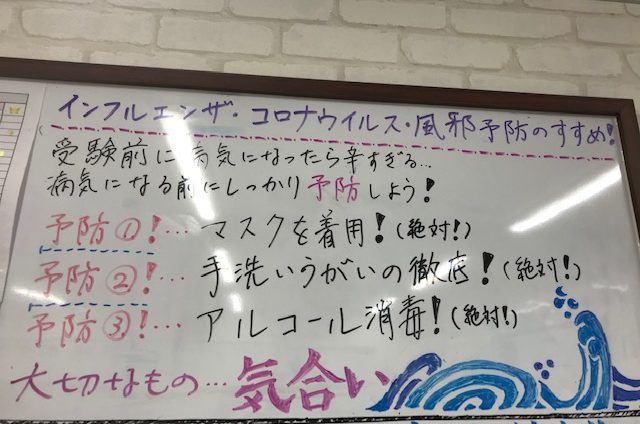 インフルエンザ・コロナウイルス・風邪予防のすすめ!
受験前に病気になったら辛すぎる...
病気になる前にしっかり予防しよう!
予防①!… マスクを着用!(絶対!)
予防②!… 手洗いうがいの徹底!(絶対!)
予防③!… アルコール消毒!(絶対!)
大切なもの…気合い